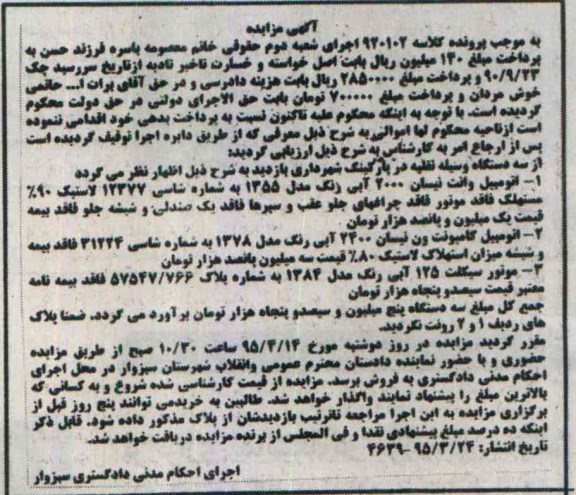 آگهی مزایده
به موجب پرونده کلاسه ۹۲۰۱۰۲ اجرای شعبه دوم حقوقی خانم معصومه یاسره فرزند حسن به
پرداخت مبلغ ۱۳۰ میلیون ریال بابت اصل خواسته و خسارت تاخیر تادیه ازتاریخ سررسید چک
۹۰/۹/۲۳ و پرداخت مبلغ ۲۸۵۰۰۰۰ ریال بابت هزینه دادرسی و در حق آقای برات ا... حاتمی
خوش مردان و پرداخت مبلغ ۷۰۰۰۰۰ تومان بابت حق الاجرای دولتی در حق دولت محکوم
گردیده است. با توجه به اینکه محکوم علیه تاکنون نسبت به پرداخت بدهی خود اقدامی ننموده
است ازناحیه محکوم لها اموالی به شرح ذیل معرفی که از طریق دایره اجرا توقیف گردیده است
پس از ارجاع امر به کارشناسی به شرح ذیل ارزیابی گردید:
از سه دستگاه وسیله نقلیه در پارکینگ شهرداری بازدید به شرح ذیل اظهار نظر می گردد
۱- اتومبیل وانت نیسان ۲۰۰۰ آبی رنگ مدل ۱۳۵۵ به شماره شاسی ۱۲۳۷۷ لاستیک ۹۰٪
مستهلک فاقد موتور فاقد چراغهای جلو عقب و سپرها فاقد یک صندلی و شیشه جلو فاقد بیمه
قیمت یک میلیون و پانصد هزار تومان
۲- اتومبیل کامیونت ون نیسان ۲۴۰۰ آبی رنگ مدل ۱۳۷۸ به شماره شاسی ۳۱۲۲۴ فاقد بیمه
و شیشه میزان استهلاک لاستیک ۸۰٪ قیمت سه میلیون پانصد هزار تومان
۳- موتور سیکلت ۱۲۵ آبی رنگ مدل ۱۳۸۴ به شماره پلاک ۵۷۵۴۷/۷۶۶ فاقد بیمه نامه
معتبر قیمت سیصدو پنجاه هزار تومان
جمع کل مبلغ سه دستگاه پنج میلیون و سیصدو پنجاه هزار تومان برآورد می گردد. ضمنا پلاک
های ردیف ۱ و ۲ رویت نگردید.
مقرر گردید مزایده در روز دوشنبه مورخ ۹۵/۴/۱۴ ساعت ۱۰/۳۰ صبح از طریق مزایده
حضوری و با حضور نماینده دادستان محترم عمومی وانقلاب شهرستان سبزوار در محل اجرای
احکام مدنی دادگستری به فروش برسد. مزایده از قیمت کارشناسی شده شروع و به کسانی که
بالاترین مبلغ را پیشنهاد نمایند واگذار خواهد شد. طالبین به خریدمی توانند پنج روز قبل از
برگزاری مزایده به این اجرا مراجعه تاترتیب بازدیدشان از پلاک مذکور داده شود. قابل ذکر
اینکه ده درصد مبلغ پیشنهادی نقدا و فی المجلس از برنده مزایده دریافت خواهد شد.
تاریخ انتشار: ۹۵/۳/۲۴ -۴۶۳۹
اجرای احکام مدنی دادگستری سبزوار